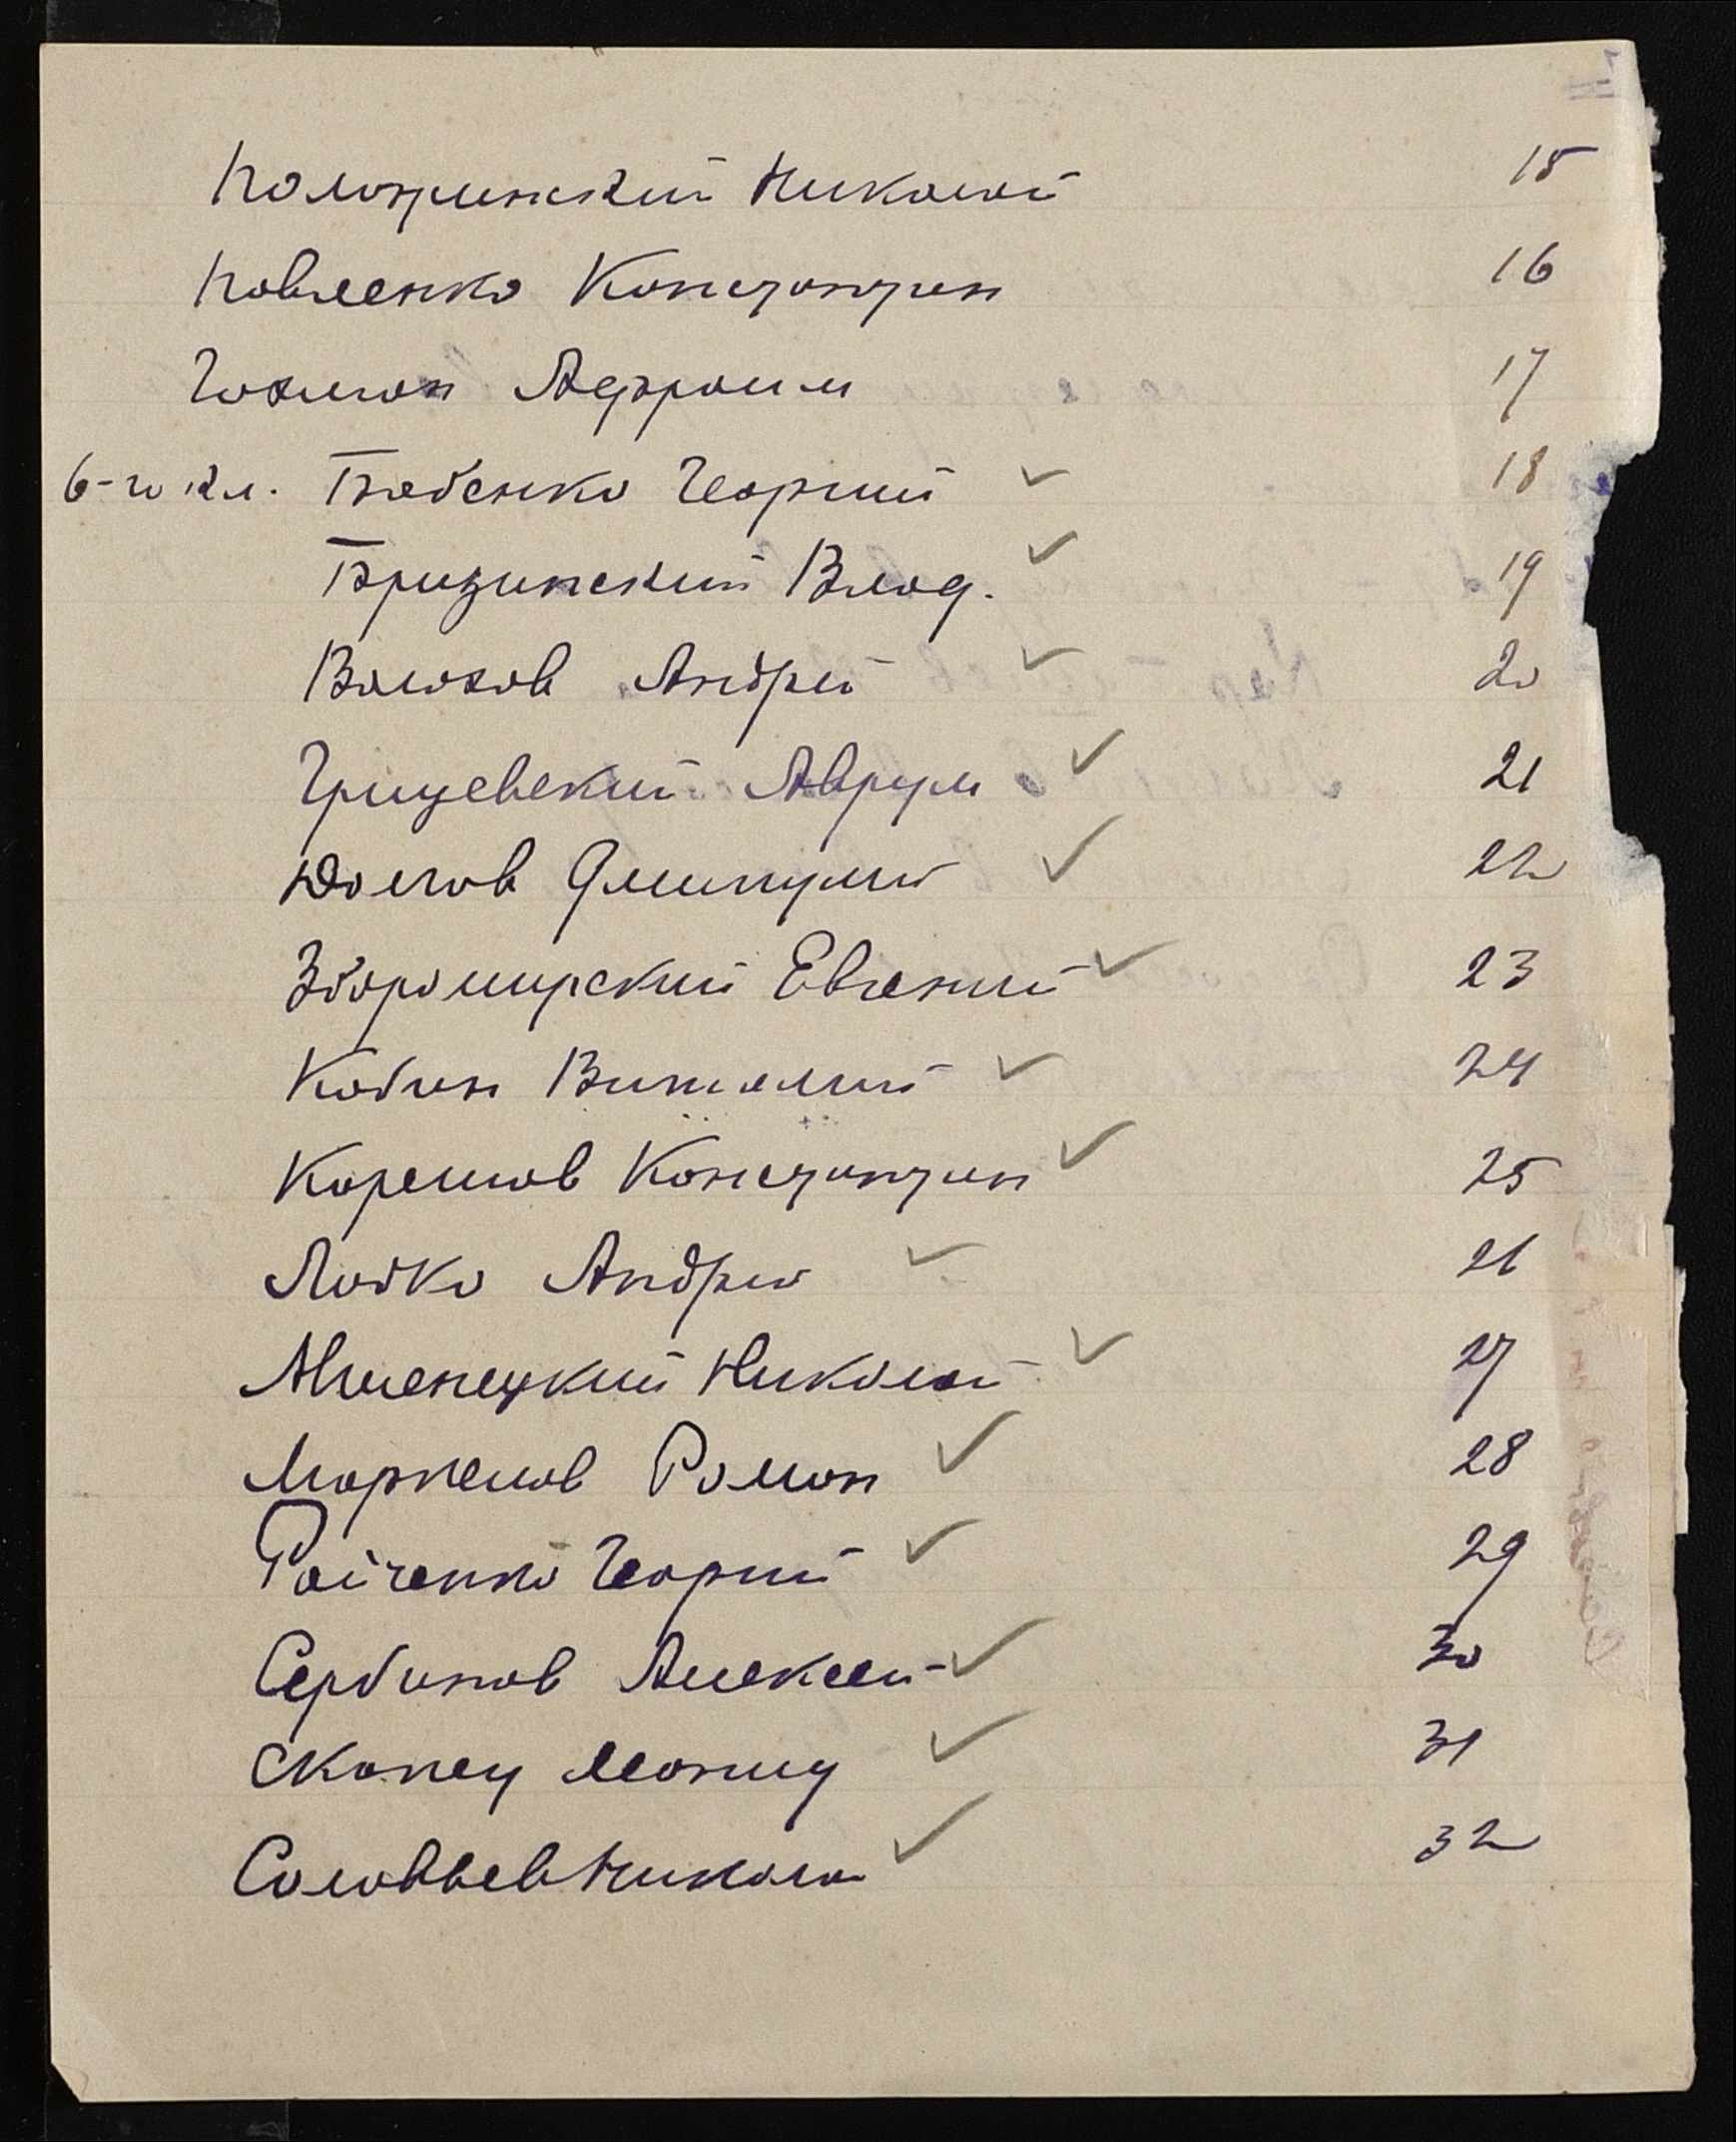 Полтринский Николай 15
Павленко Константин 16
Гохман Аефроим 17
6-го кл. Бабенко Георгий ✓ 18
Бризинский Влад. ✓ 19
Волохов Андрей ✓ 20
Грищевский Аврум ✓ 21
Долгов Дмитрий ✓ 22
Збромирский Евгений ✓ 23
Кобин Виталий ✓ 24
Корешов Константин ✓ 25
Лобко Андрей ✓ 26
Мшенецкий Николай ✓ 27
Маркелов Роман ✓ 28
Райченко Георгий ✓ 29
Сербинов Алексей ✓ 30
Скопец Леонид ✓ 31
Соловьев Николай ✓ 32